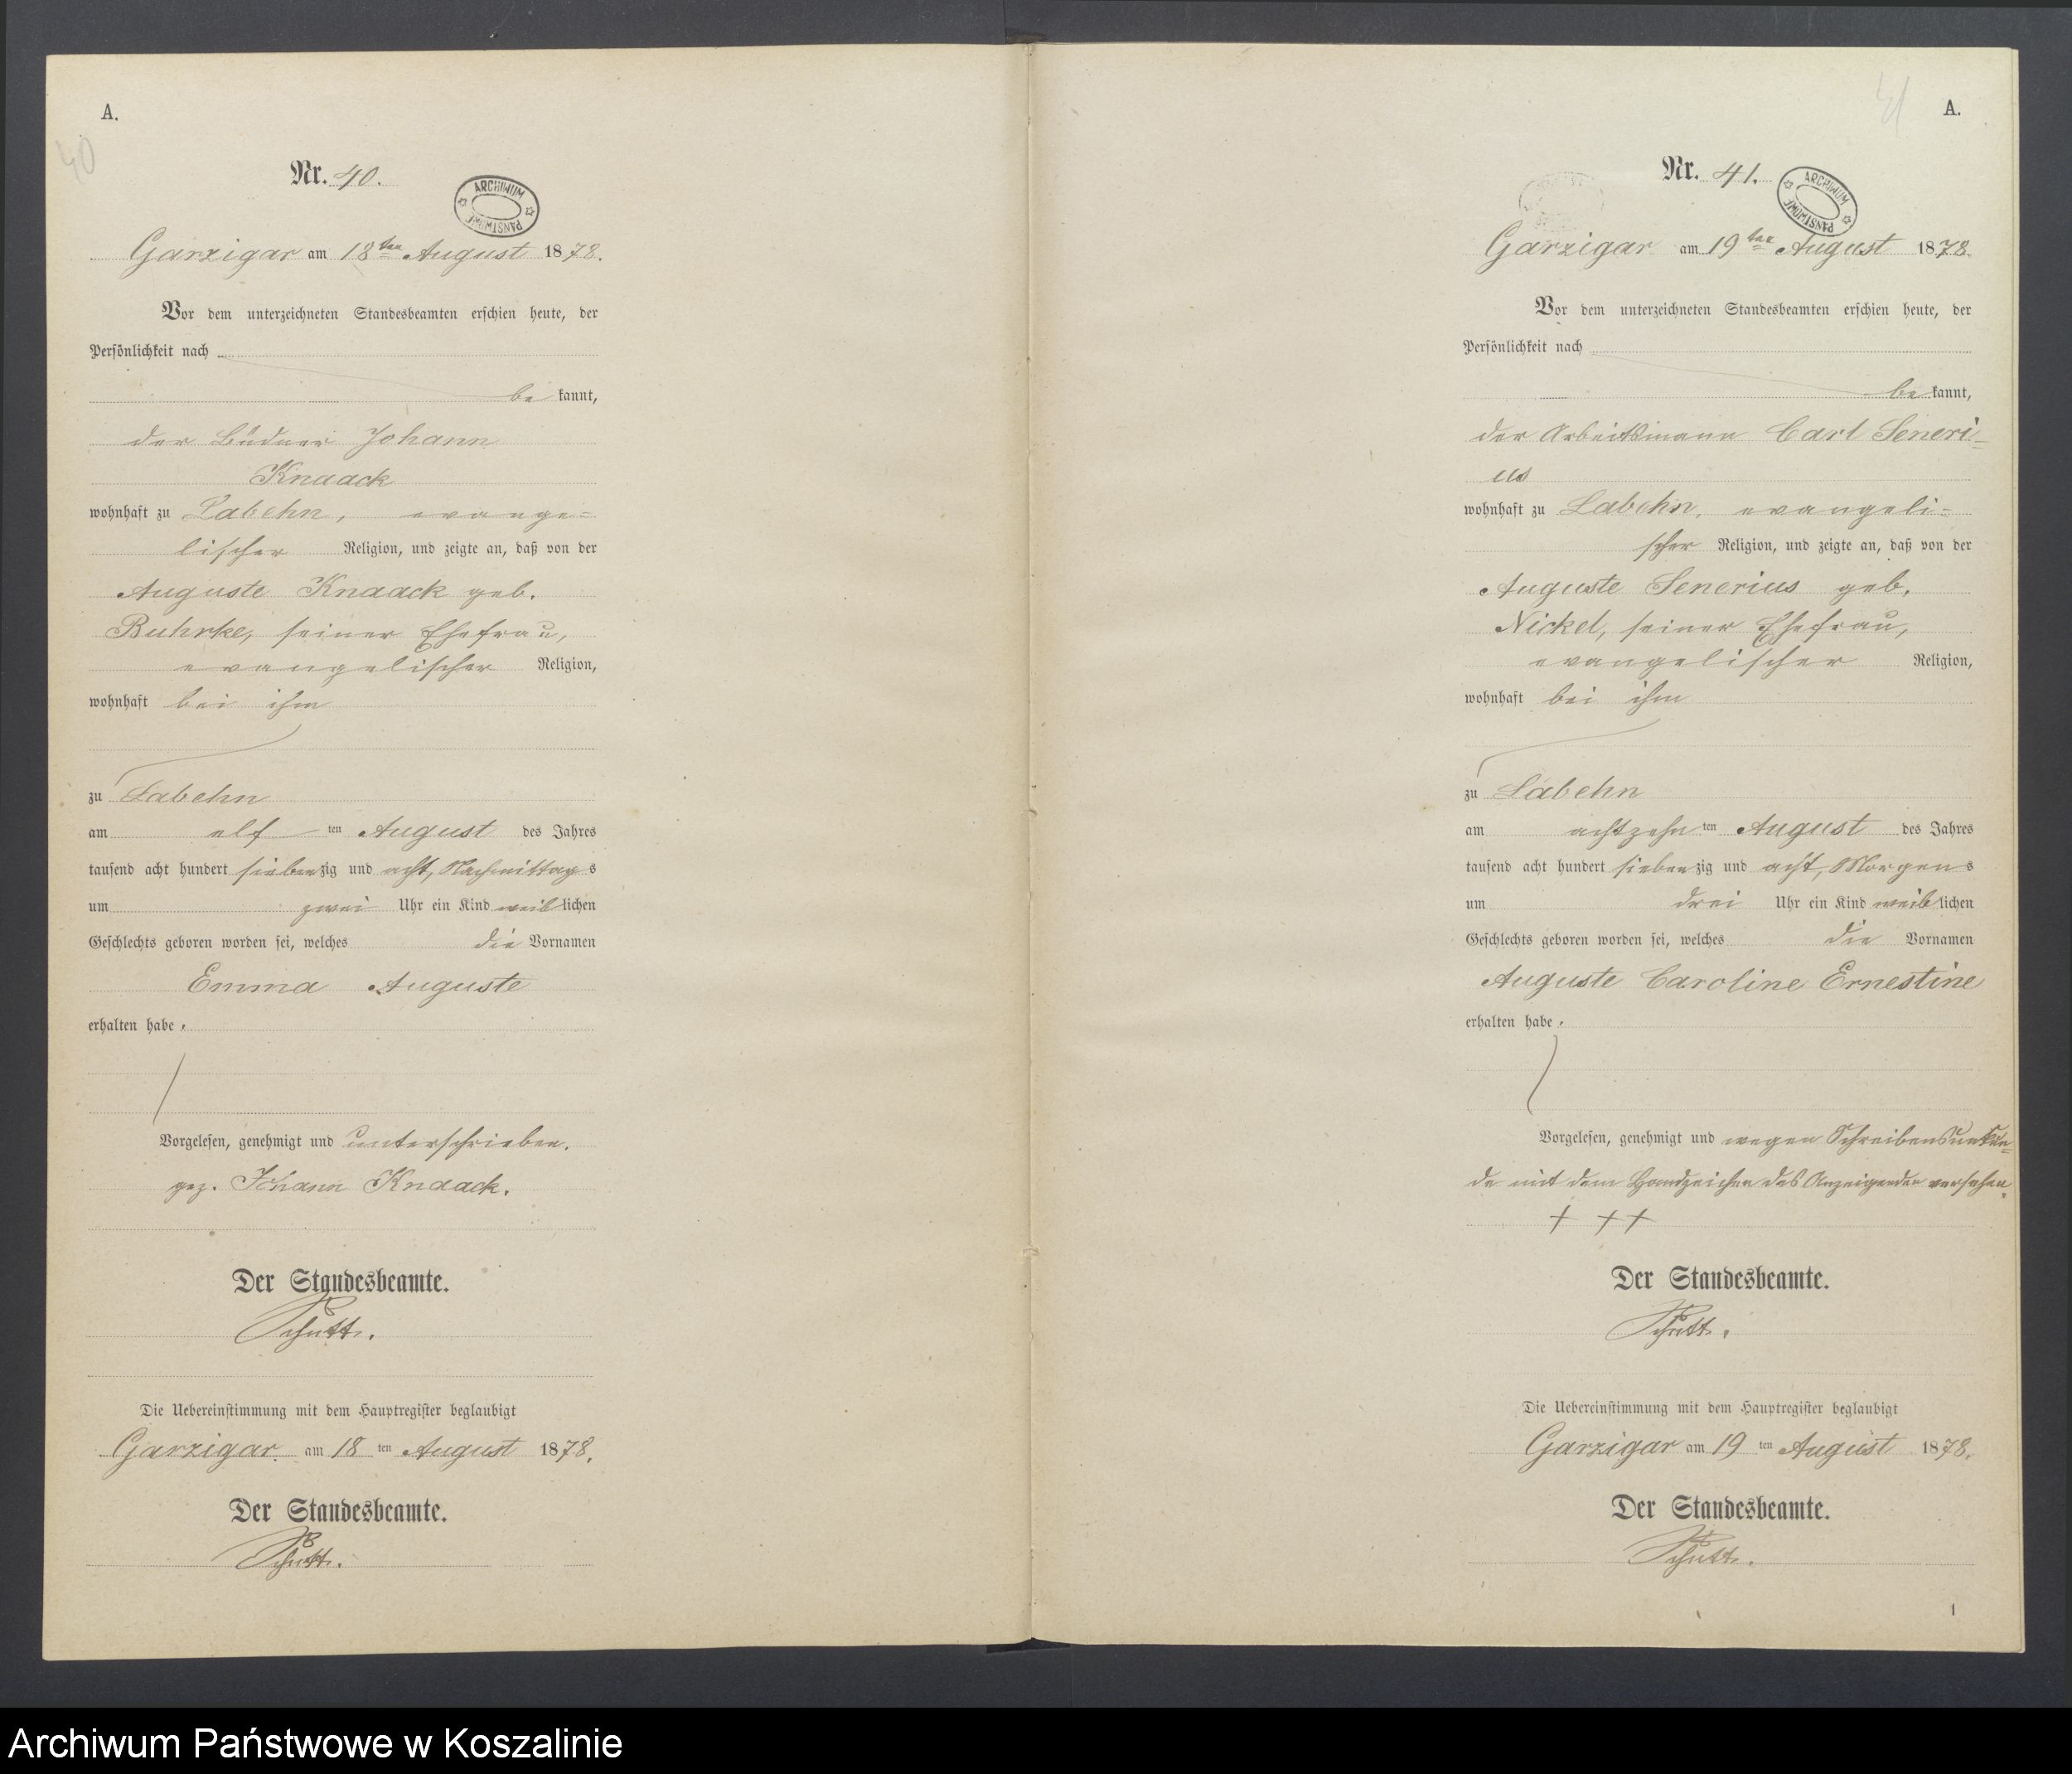 A.
40
Nr. 40.
ARCHIWUM PAŃSTWOWE
Garzigar am 18ten August 1878.
Vor dem unterzeichneten Standesbeamten erschien heute, der
Persönlichkeit nach
be kannt,
der Büdner Johann
Knaack
wohnhaft zu Labehn, evange=
lischer Religion, und zeigte an, daß von der
Auguste Knaack geb.
Buhrke, seiner Ehefrau,
evangelischer Religion,
wohnhaft bei ihm
zu Labehn
am elf ten August des Jahres
tausend acht hundert siebenzig und acht, Nachmittags
um zwei Uhr ein Kind weiblichen
Geschlechts geboren worden sei, welches die Vornamen
Emma Auguste
erhalten habe.
Vorgelesen, genehmigt und unterschrieben.
gez. Johann Knaack.
Der Standesbeamte.
Schutt.
Die Uebereinstimmung mit dem Hauptregister beglaubigt
Garzigar am 18 ten August 1878.
Der Standesbeamte.
Schutt.
41
A.
Nr. 41.
ARCHIWUM PAŃSTWOWE
Garzigar am 19ten August 1878.
Vor dem unterzeichneten Standesbeamten erschien heute, der
Persönlichkeit nach
be kannt,
der Arbeitsmann Carl Seneri=
us
wohnhaft zu Labehn, evangeli=
scher Religion, und zeigte an, daß von der
Auguste Senerius geb.
Nickel, seiner Ehefrau,
evangelischer Religion,
wohnhaft bei ihm
zu Labehn
am achtzehn ten August des Jahres
tausend acht hundert siebenzig und acht, Morgens
um drei Uhr ein Kind weiblichen
Geschlechts geboren worden sei, welches die Vornamen
Auguste Caroline Ernestine
erhalten habe.
Vorgelesen, genehmigt und wegen Schreibensunkun=
de mit dem Handzeichen des Anzeigenden versehen.
+ ++
Der Standesbeamte.
Schutt.
Die Uebereinstimmung mit dem Hauptregister beglaubigt
Garzigar am 19 ten August 1878.
Der Standesbeamte.
Schutt.
1
Archiwum Państwowe w Koszalinie